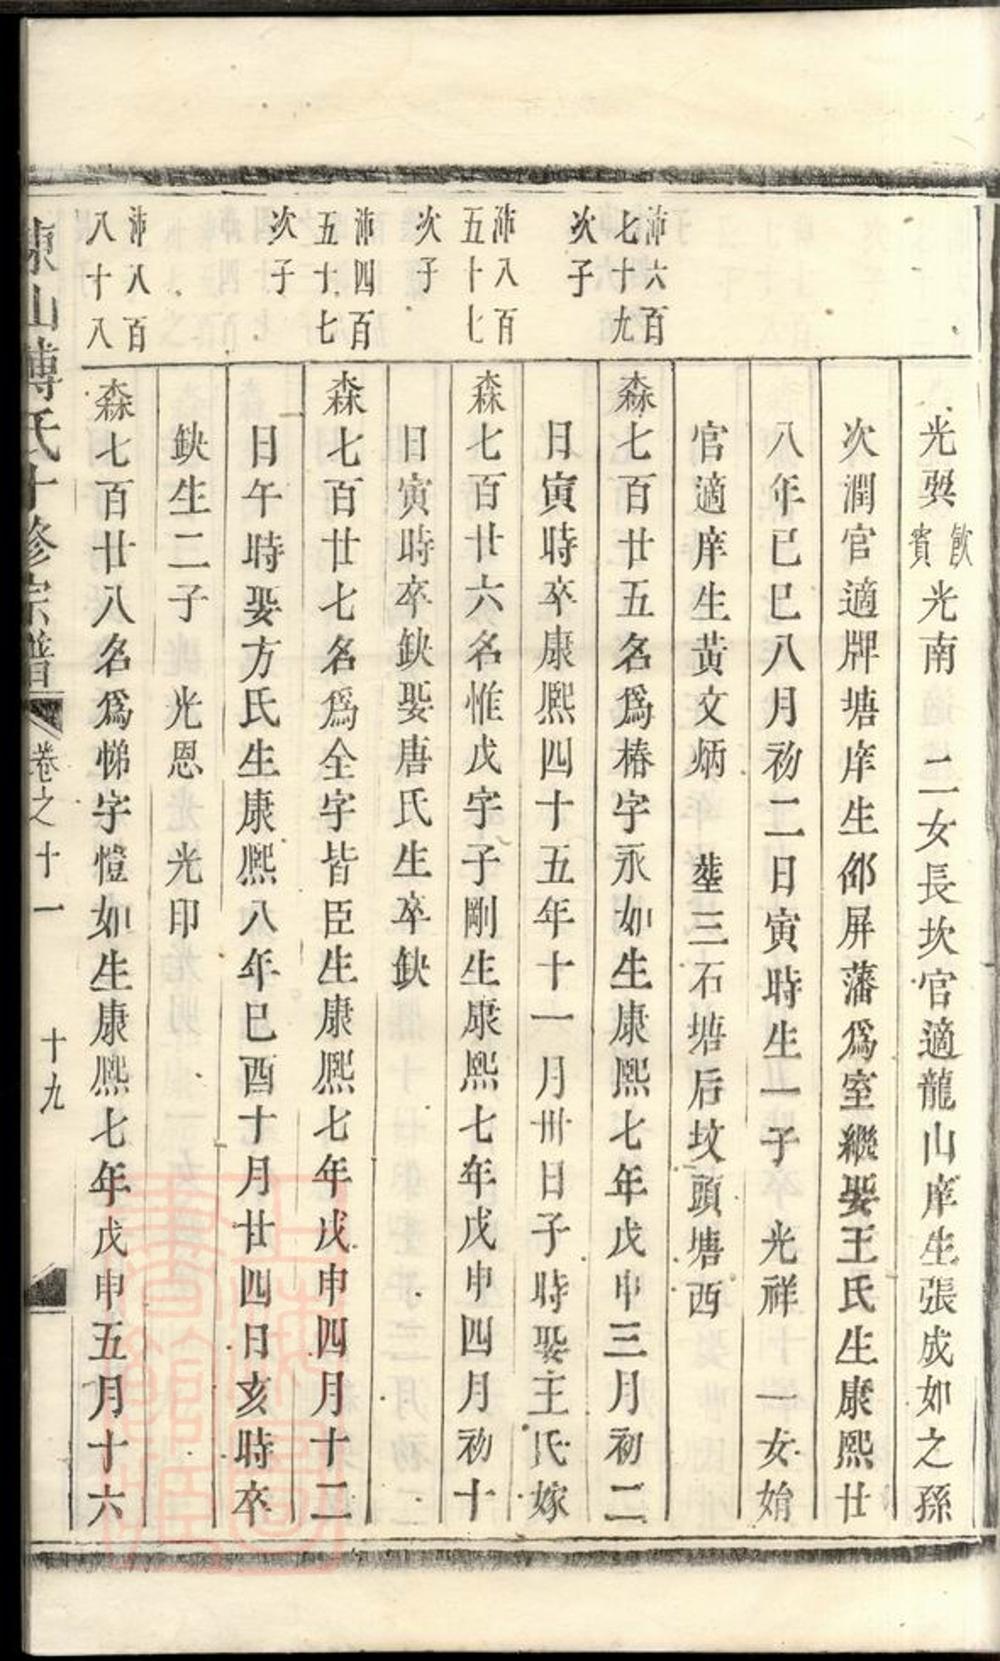 光㢞飲賓光南　二女長坎官適龍山庠生張成如之孫
次潤官適牌塘庠生邰屏藩爲室繼娶王氏生康熙廿
八年己巳八月初二日寅時生一子　光祥　一女始
官適庠生黃文炳　塟三石塘后坟頭塘西
沛六百七十九次子
森七百廿五名爲椿字永如生康熙七年戊申三月初二
日寅時卒康熙四十五年十一月卅日子時娶王氏嫁
沛八百五十七次子
森七百廿六名惟戊字子剛生康熙七年戊申四月初十
日寅時卒缺娶唐氏生卒缺
沛四百五十七次子
森七百廿七名爲全字皆臣生康熙七年戊申四月十二
日午時娶方氏生康熙八年己酉十月廿四日亥時卒
缺生二子　光恩　光印
沛八百八十八
森七百廿八名爲悌字愷如生康熙七年戊申五月十六
東山傅氏十修宗譜
卷之十一
十九